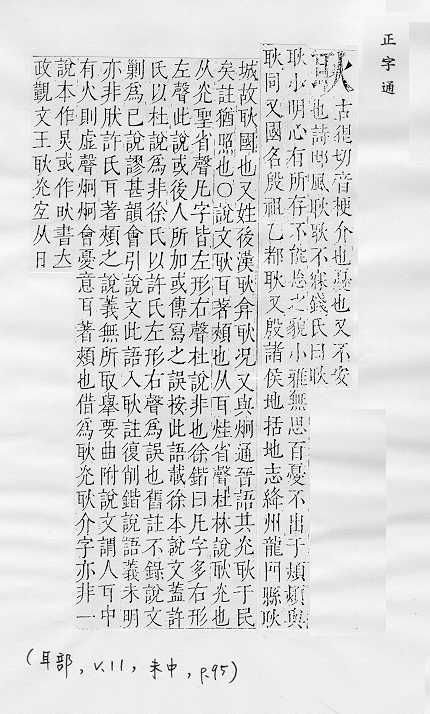 正字通
耿
古梗切音梗介也憂也又不安
也詩邶風耿耿不寐錢氏曰耿
耿小明心有所存不能忘之貌小雅無思百憂不出于熲熲與
耿同又國名殷祖乙都耿又殷諸侯地括地志絳州龍門縣耿
城故耿國也又姓後漢耿弇耿況又與炯通晉語其光耿于民
矣註猶照也○說文耿耳著頰也从耳烓省聲杜林說耿光也
从光聖省聲凡字皆左形右聲杜說非也徐鍇曰凡字多右形
左聲此說或後人所加或傳寫之誤按此語載徐本說文蓋許
氏以杜說為非徐氏以許氏左形右聲為誤也舊註不錄說文
剿為已說謬甚韻會引說文此語入耿註復削鍇說語義未明
亦非肰許氏耳著頰之說義無所取舉要曲附說文謂人耳中
有火則虛聲炯炯會憂意耳著頰也借為耿光耿介字亦非一
說本作炅或作耿書立
政觀文王耿光左从日
(耳部, v.11, 未中, p.95)